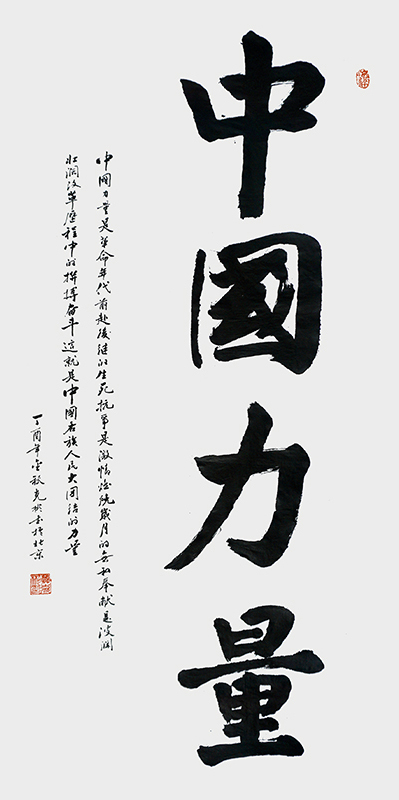 中國力量
中國力量是革命年代前赴後继的生死抗争是激情燃烧歲月的無私奉献是波澜
壮阔改革歷程中的拼搏奋斗這就是中國各族人民大团结的力量
丁酉年金秋克於北京